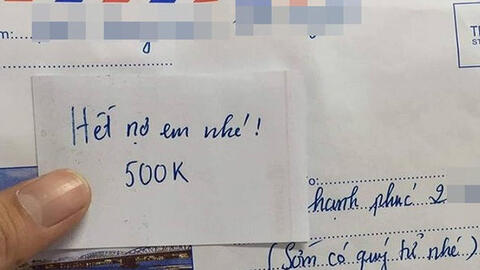 Hết nợ em nhé!
500K
hạnh phúc 2
(Sớm có quý tử nhé...)